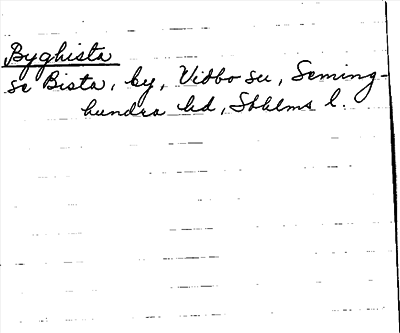 Byghista
se Bista, by, Vidbo sn, Seming-
hundra hd, Sthlms l.